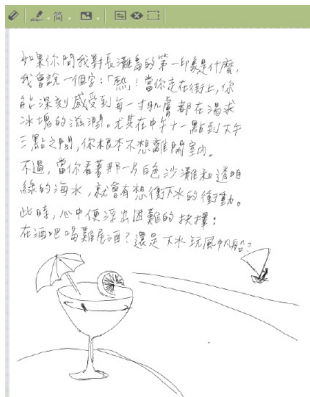 简
如果你問我對長灘島的第一印象是什麼,
我會說一個字:「熱」!當你走在街上,你
能深刻感受到每一寸肌膚都在渴求
冰塊的滋潤。尤其在中午十一點到下午
三點之間,你根本不想離開室內。
不過,當你看著那一片白色沙灘和透明
綠的海水,就會有想衝下水的衝動。
此時,心中便浮出困難的抉擇:
在酒吧喝雞尾酒?還是下水玩風帆船?